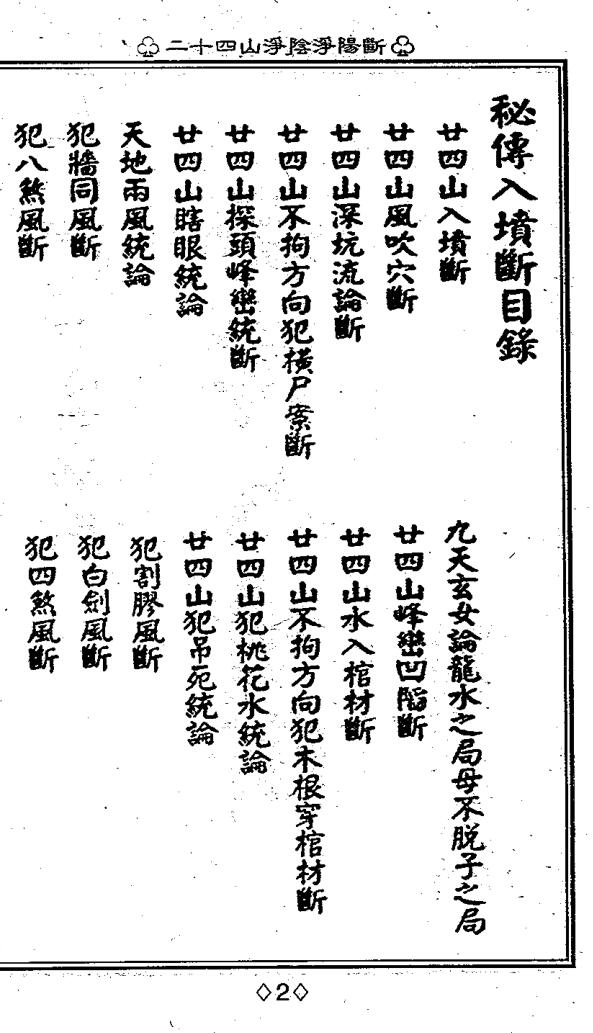 ♧二十四山淨陰淨陽斷♧
秘傳入墳斷目錄
廿四山入墳斷
九天玄女論龍水之局母不脱子之局
廿四山風吹穴斷
廿四山峰巒凹陷斷
廿四山深坑流論斷
廿四山水入棺材斷
廿四山不拘方向犯橫尸案斷
廿四山不拘方向犯木根穿棺材斷
廿四山探頭峰巒統斷
廿四山犯桃花水統論
廿四山瞎眼統論
廿四山犯吊死統論
天地兩風統論
犯割膠風斷
犯牆同風斷
犯白劍風斷
犯八煞風斷
犯四煞風斷
◇2◇